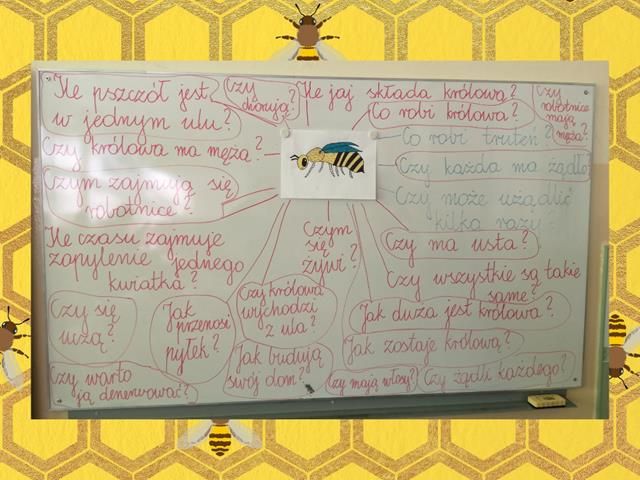 Ile pszczół jest
w jednym ulu?
Czy
chorują?
Ile jaj składa królowa?
Czy
robotnice
mają
męża?
Co robi królowa?
Czy królowa ma męża?
Co robi truteń?
Czym zajmują się
robotnice?
Czy każda ma żądło
Czy może użądlić
kilka razy?
Ile czasu zajmuje
zapylenie jednego
kwiatka?
Czym
się
żywi?
Czy ma usta?
Czy wszystkie są takie
same?
Czy się
Jak
przenosi
pyłek?
Czy królowa
wychodzi
z ula?
Jak duża jest królowa?
Jak zostaje królową?
Czy warto
ją denerwować?
Jak budują
swój dom?
Czy mają włosy?
Czy żądli każdego?